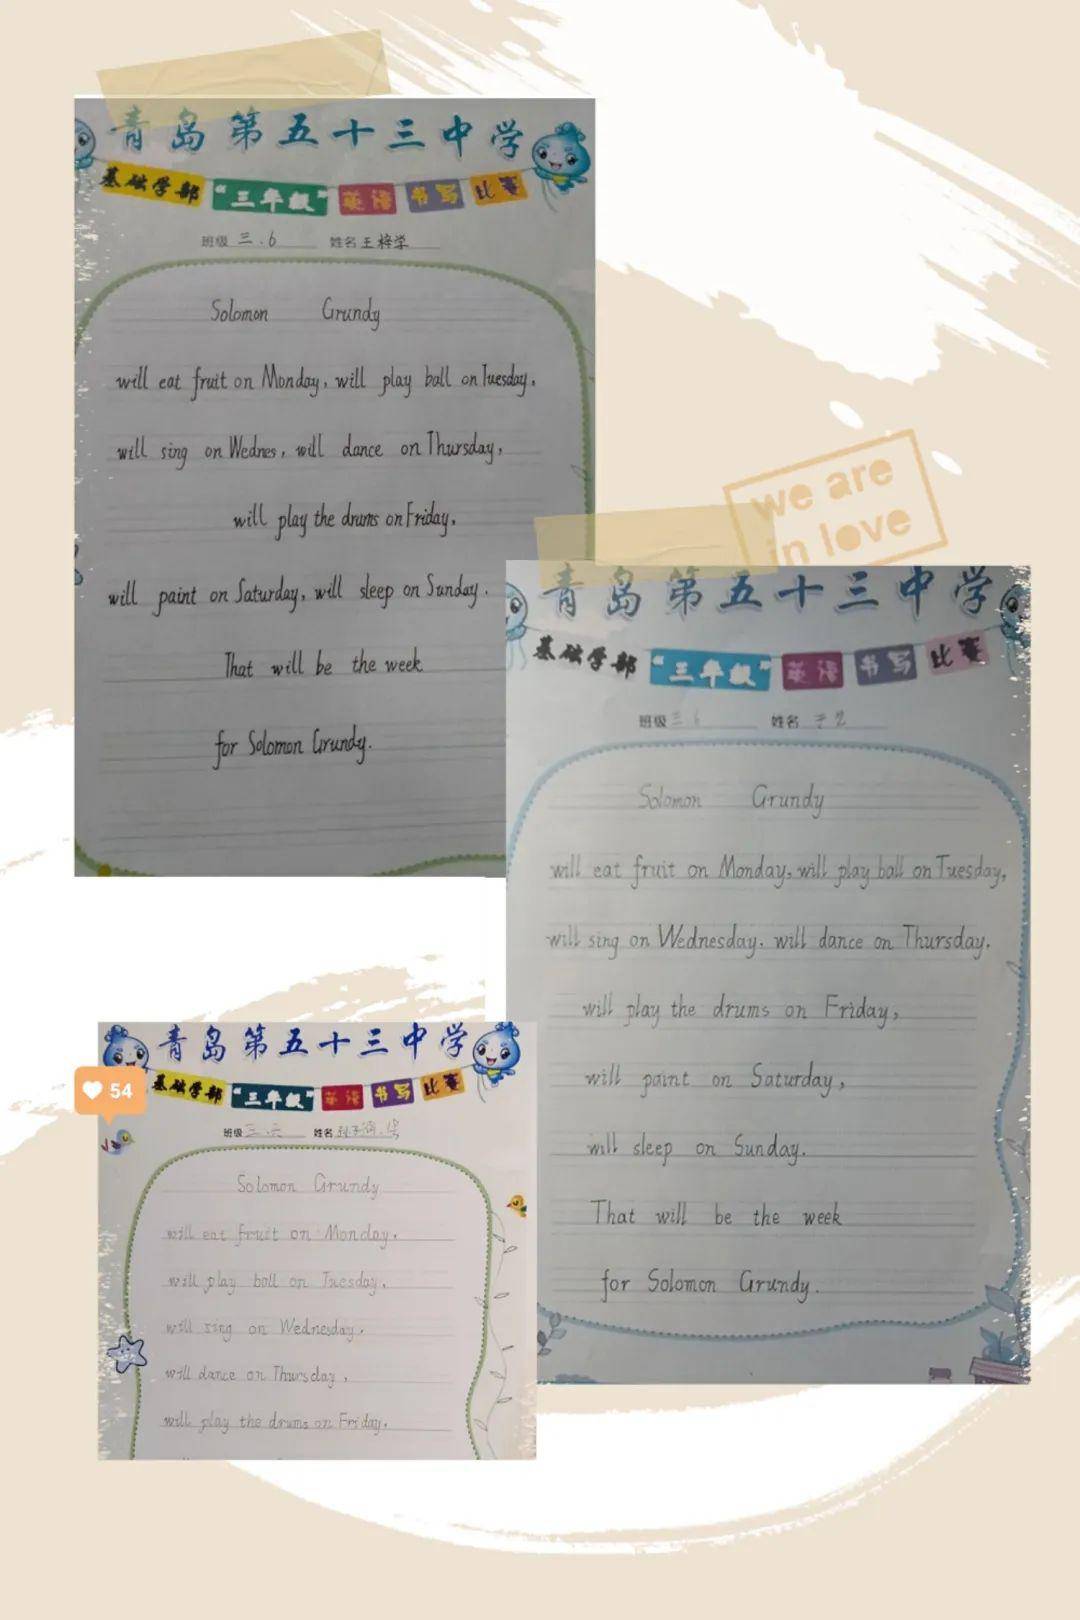 青岛第五十三中学
基础学部 “三年级” 英语 书写 比赛
班级 三.6 姓名 王梓学
Solomon Grundy
will eat fruit on Monday, will play ball on Tuesday,
will sing on Wednes, will dance on Thursday,
will play the drums on Friday,
will paint on Saturday, will sleep on Sunday.
That will be the week
for Solomon Grundy.
we are
in love
青岛第五十三中学
基础学部 “三年级” 英语 书写 比赛
班级 三.6 姓名
Solomon Grundy
will eat fruit on Monday, will play ball on Tuesday,
will sing on Wednesday, will dance on Thursday,
will play the drums on Friday,
will paint on Saturday,
will sleep on Sunday.
That will be the week
for Solomon Grundy.
54
青岛第五十三中学
基础学部 “三年级” 英语 书写 比赛
班级 三.六 姓名
Solomon Grundy
will eat fruit on Monday,
will play ball on Tuesday,
will sing on Wednesday,
will dance on Thursday,
will play the drums on Friday,